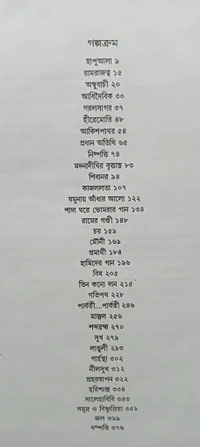 গল্পক্রম
হাপুআলা ৯
রামরাজত্ব ১৫
অম্বুবাচী ২০
আধিদৈবিক ৩০
গরলসাগর ৩৭
হীরেমোতি ৪৮
আকিশপাথর ৫৪
প্রধান অতিথি ৬৫
নিষ্পত্তি ৭৪
মদনাদীঘির বৃত্তান্ত ৮৩
শিবানর ৯৪
কাজললতা ১০৭
যমুনায় আঁধার আলো ১২২
শাদা ঘরে ভোমরার গান ১৩৪
রামের গণ্ডী ১৪৮
চর ১৫৯
মৌনী ১৬৯
প্রমার্থী ১৮৪
হামিদের গান ১৯৬
বিষ ২০৫
তিন কন্যে দান ২১৫
গতিপথ ২২৮
পার্বতী...পার্বতী ২৪৬
মাস্তুল ২৫৬
শব্দব্রহ্ম ২৭০
সুখ ২৭৯
লাঙুলী ২৯৩
গার্হস্থ্য ৩০২
নীলসুখ ৩১২
প্রহরযাপন ৩২২
হরিশ্চন্দ্র ৩৩৪
সালেহাবিবি ৩৪৩
সমুর ও বিষ্ণুপ্রিয়া ৩৫৯
জল ৩৬৯
দম্পতি ৩৭৬